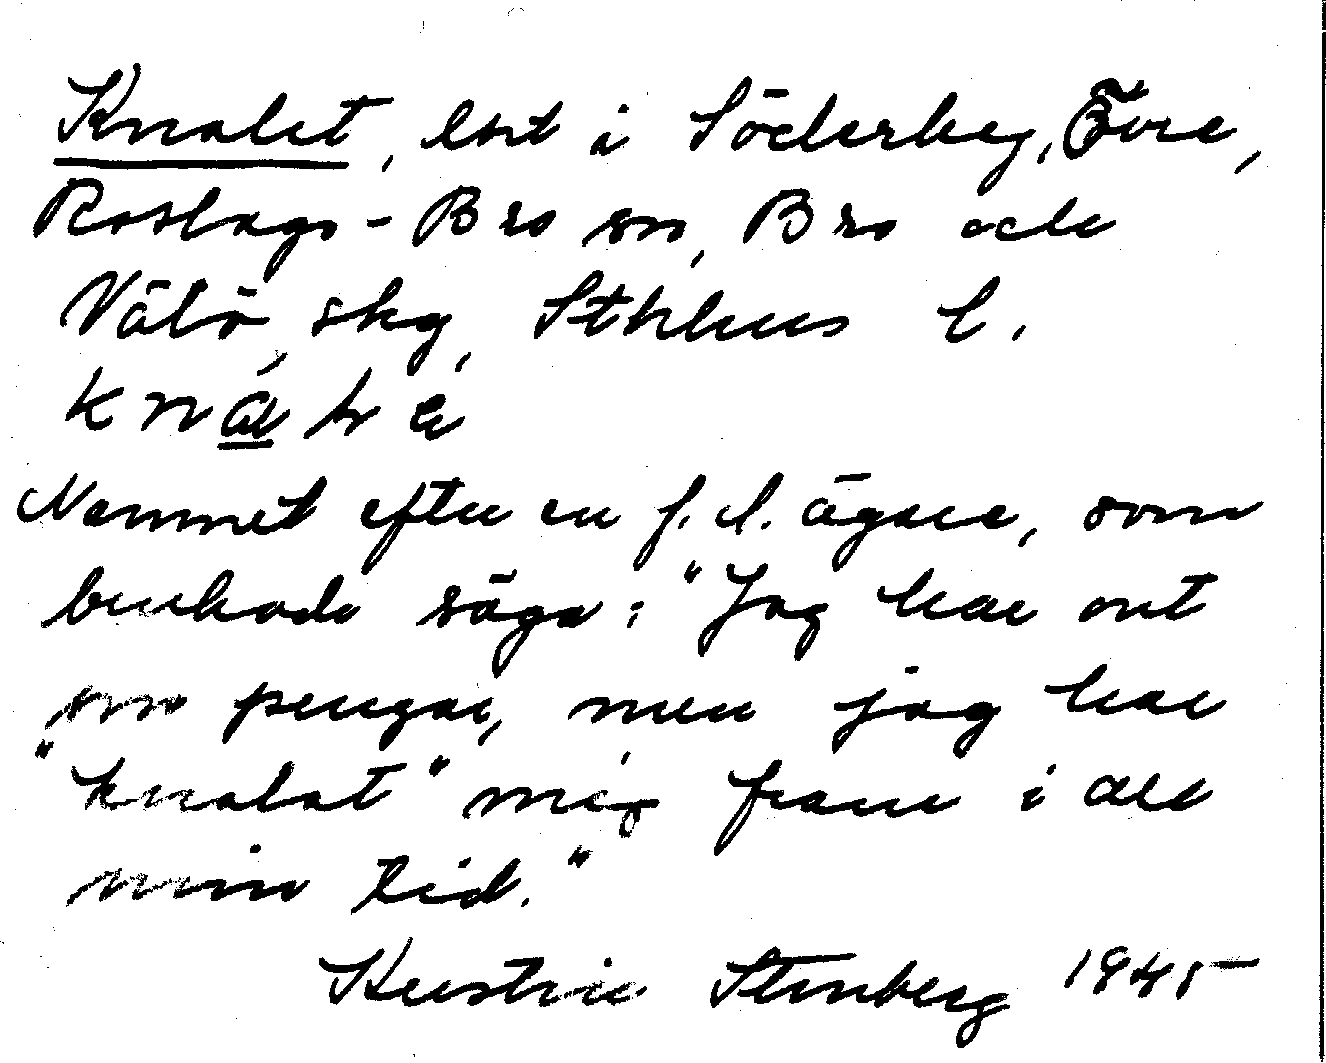 Knalet, lht i Söderby, Övre,
Roslags-Bro sn, Bro och
Vätö skg, Sthlms l.
Namnet efter en f.d. ägare, som
brukade säga: "Jag har ont
om pengar, men jag har
"knalat" mig fram i all
min tid."
Kerstin Stenberg 1945